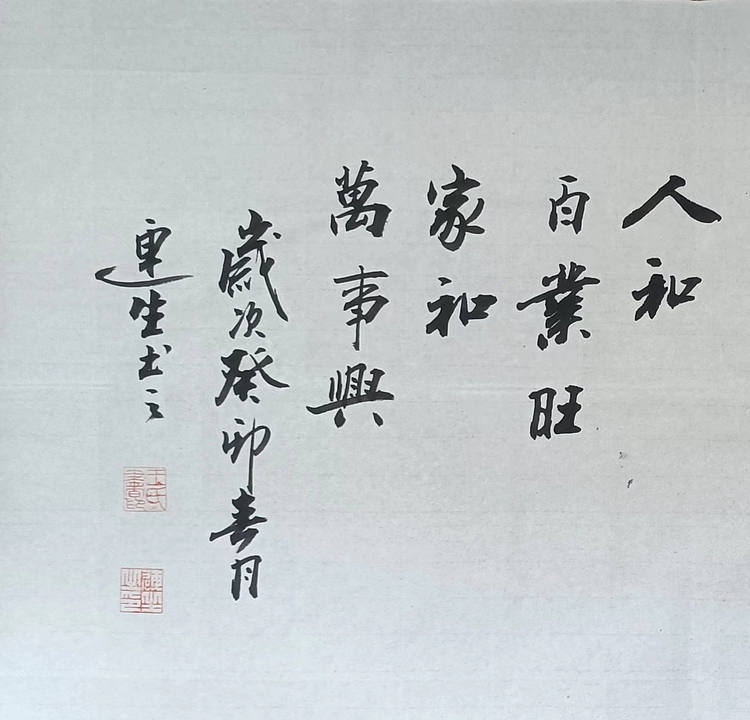 人和
百業旺
家和
萬事興
歲次癸卯春月
連生书之